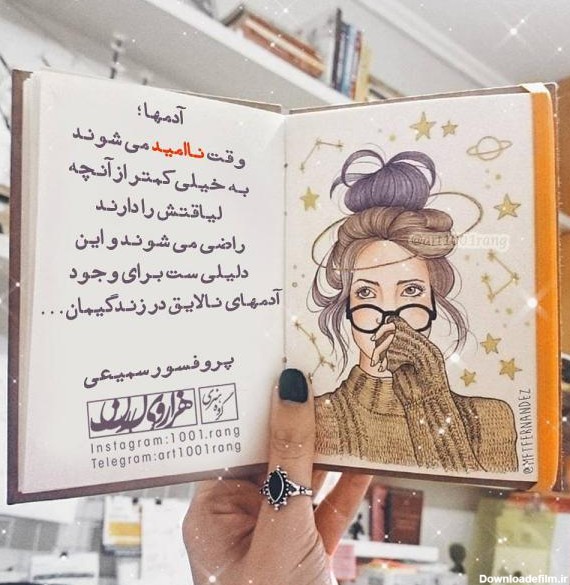 آدمها؛
وقت ناامید می شوند
به خیلی کمتر از آنچه
لیاقتش را دارند
راضی می شوند و این
دلیلی ست برای وجود
آدمهای نالایق در زندگیمان...
پروفسور سمیعی
گروه هنری
هزار و یک رنگ
Instagram:1001.rang
Telegram:art1001rang
@art1001rang
@MFTFERNANDEZ
Downloadefilm.ir